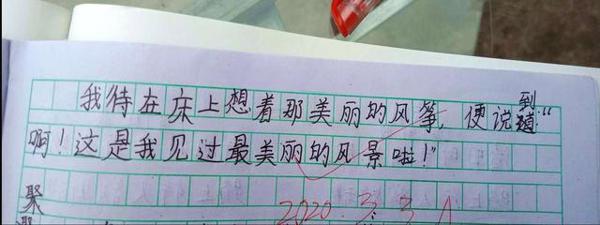 我待在床上想着那美丽的风筝,便说到:“
啊!这是我见过最美丽的风景啦!”
2020.3.3
聚